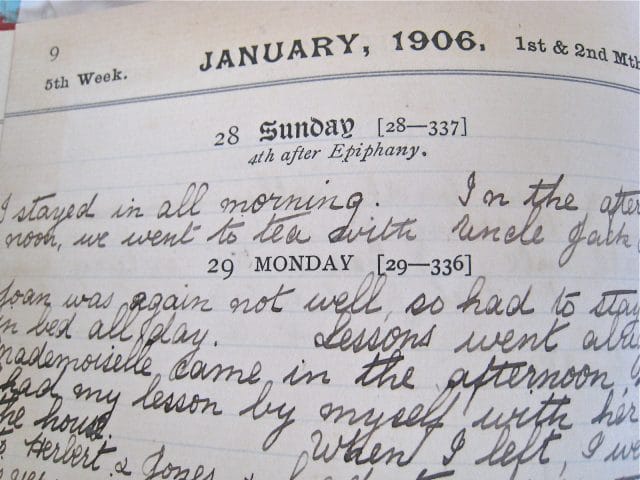 9
JANUARY, 1906.
1st & 2nd Mth
5th Week.
28 Sunday [28—337]
4th after Epiphany.
I stayed in all morning. In the after
noon, we went to tea with Uncle Jack
29 MONDAY [29—336]
Joan was again not well, so had to stay
in bed all day. Lessons went
mademoiselle came in the afternoon,
had my lesson by myself with her
the hour.
Herbert & Jones When I left, I we